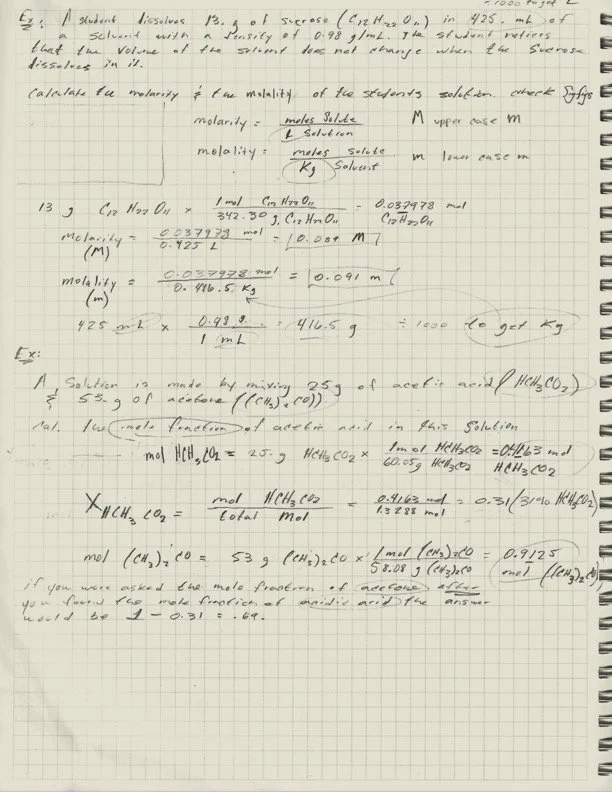 ÷ 1000 to get L
Ex: A student dissolves 13. g of sucrose (C12 H22 O11) in 425. mL of
a solvent with a density of 0.98 g/mL. The student notices
that the volume of the solvent does not change when the sucrose
dissolves in it.
Calculate the molarity & the molality of the students solution. check
molarity = moles solute / L Solution M upper case m
molality = moles solute / Kg Solvent m lower case m
13 g C12 H22 O11 × 1 mol C12 H22 O11 / 342.30 g C12 H22 O11 = 0.037978 mol C12 H22 O11
Molarity (M) = 0.037978 mol / 0.425 L = M
molality (m) = 0.037978 mol / 0.416.5 Kg = 0.091 m
425 mL × 0.98 g / 1 mL = 416.5 g ÷ 1000 to get Kg
Ex:
A Solution is made by mixing 25g of acetic acid (HCH3CO2)
& 53. g of acetone ((CH3)2 CO))
Cal. the mole fraction of acetic acid in this Solution
mol HCH3CO2 = 25. g HCH3CO2 × 1 mol HCH3CO2 / 60.05g HCH3CO2 = 0.4163 mol HCH3CO2
X HCH3CO2 = mol HCH3CO2 / total mol = 0.4163 mol / 1.3288 mol = 0.31 (31% HCH3CO2)
mol (CH3)2 CO = 53 g (CH3)2CO × 1 mol (CH3)2CO / 58.08 g (CH3)2CO = 0.9125 mol ((CH3)2CO)
if you were asked the mole fraction of acetone after
you found the mole fraction of acid the answer
would be 1 - 0.31 = .69.